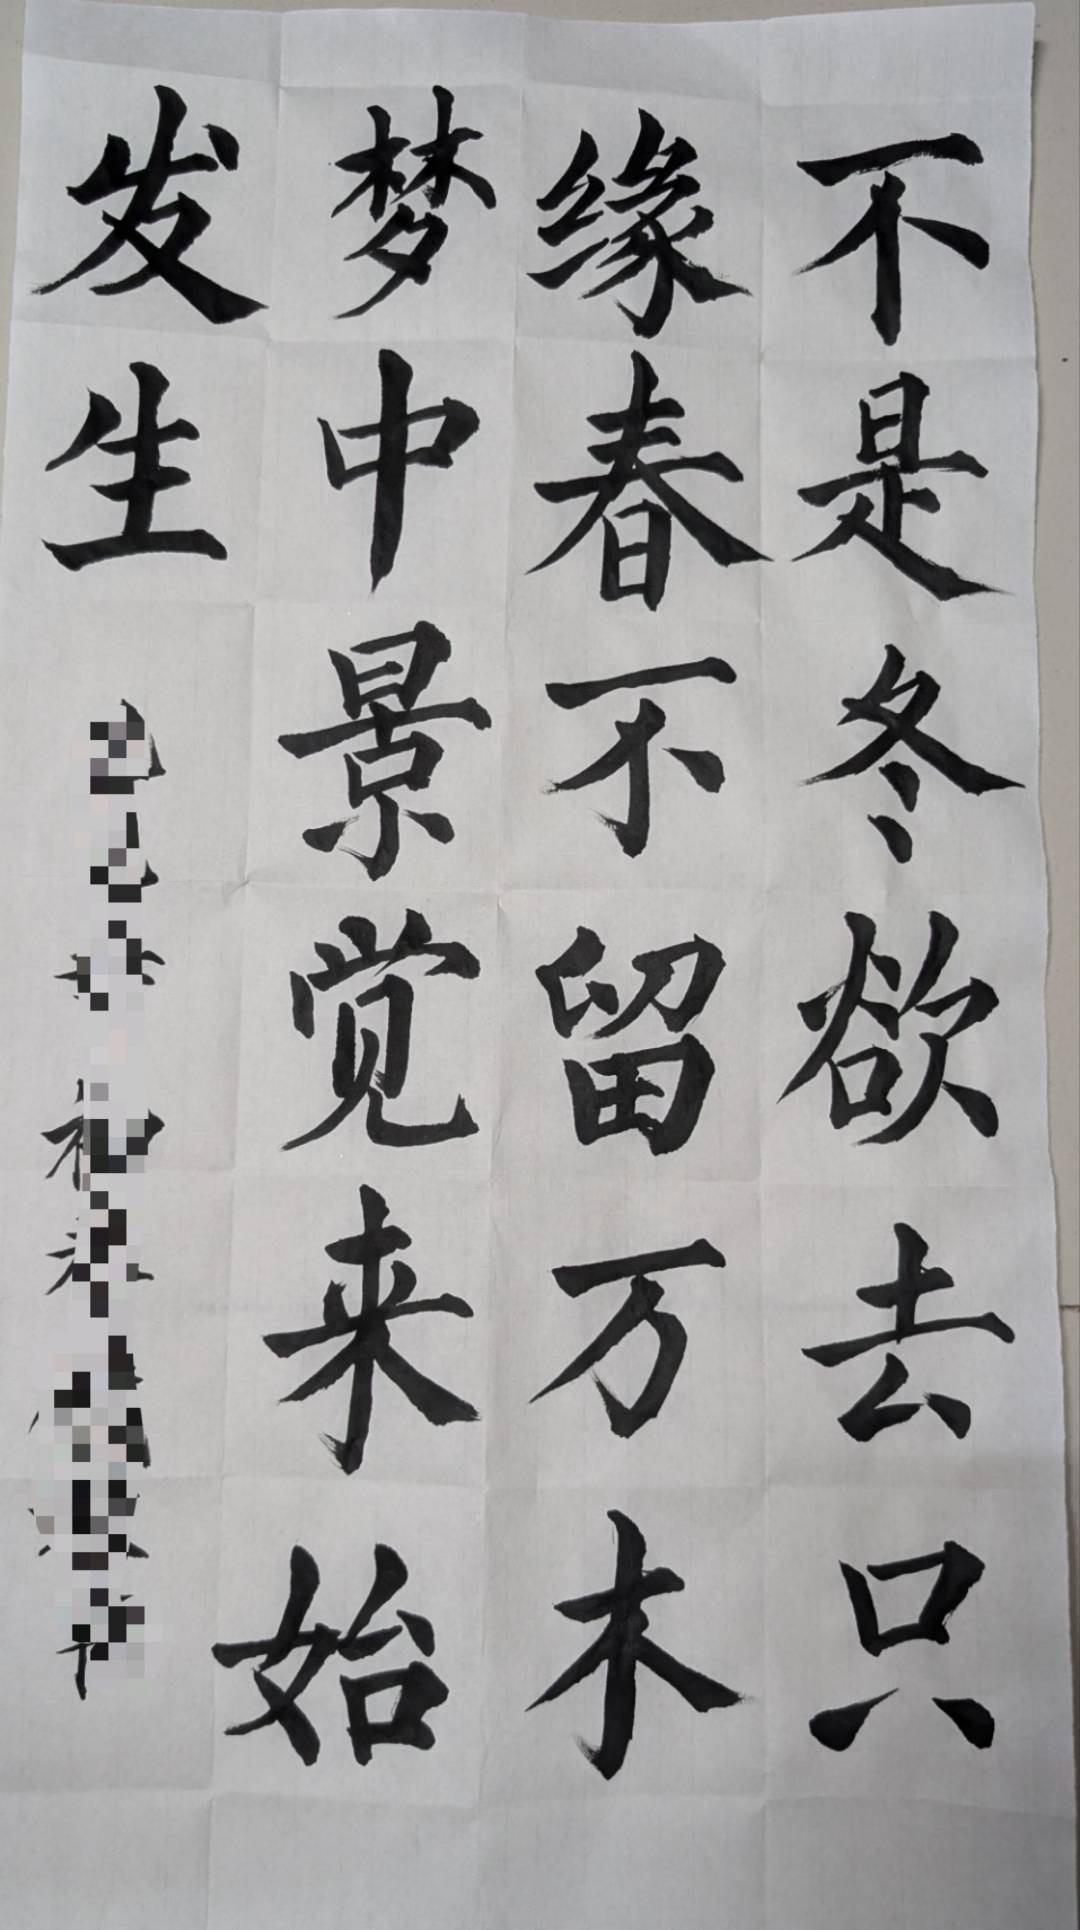 不是冬欲去只
缘春不留万木
梦中景觉来始
发生